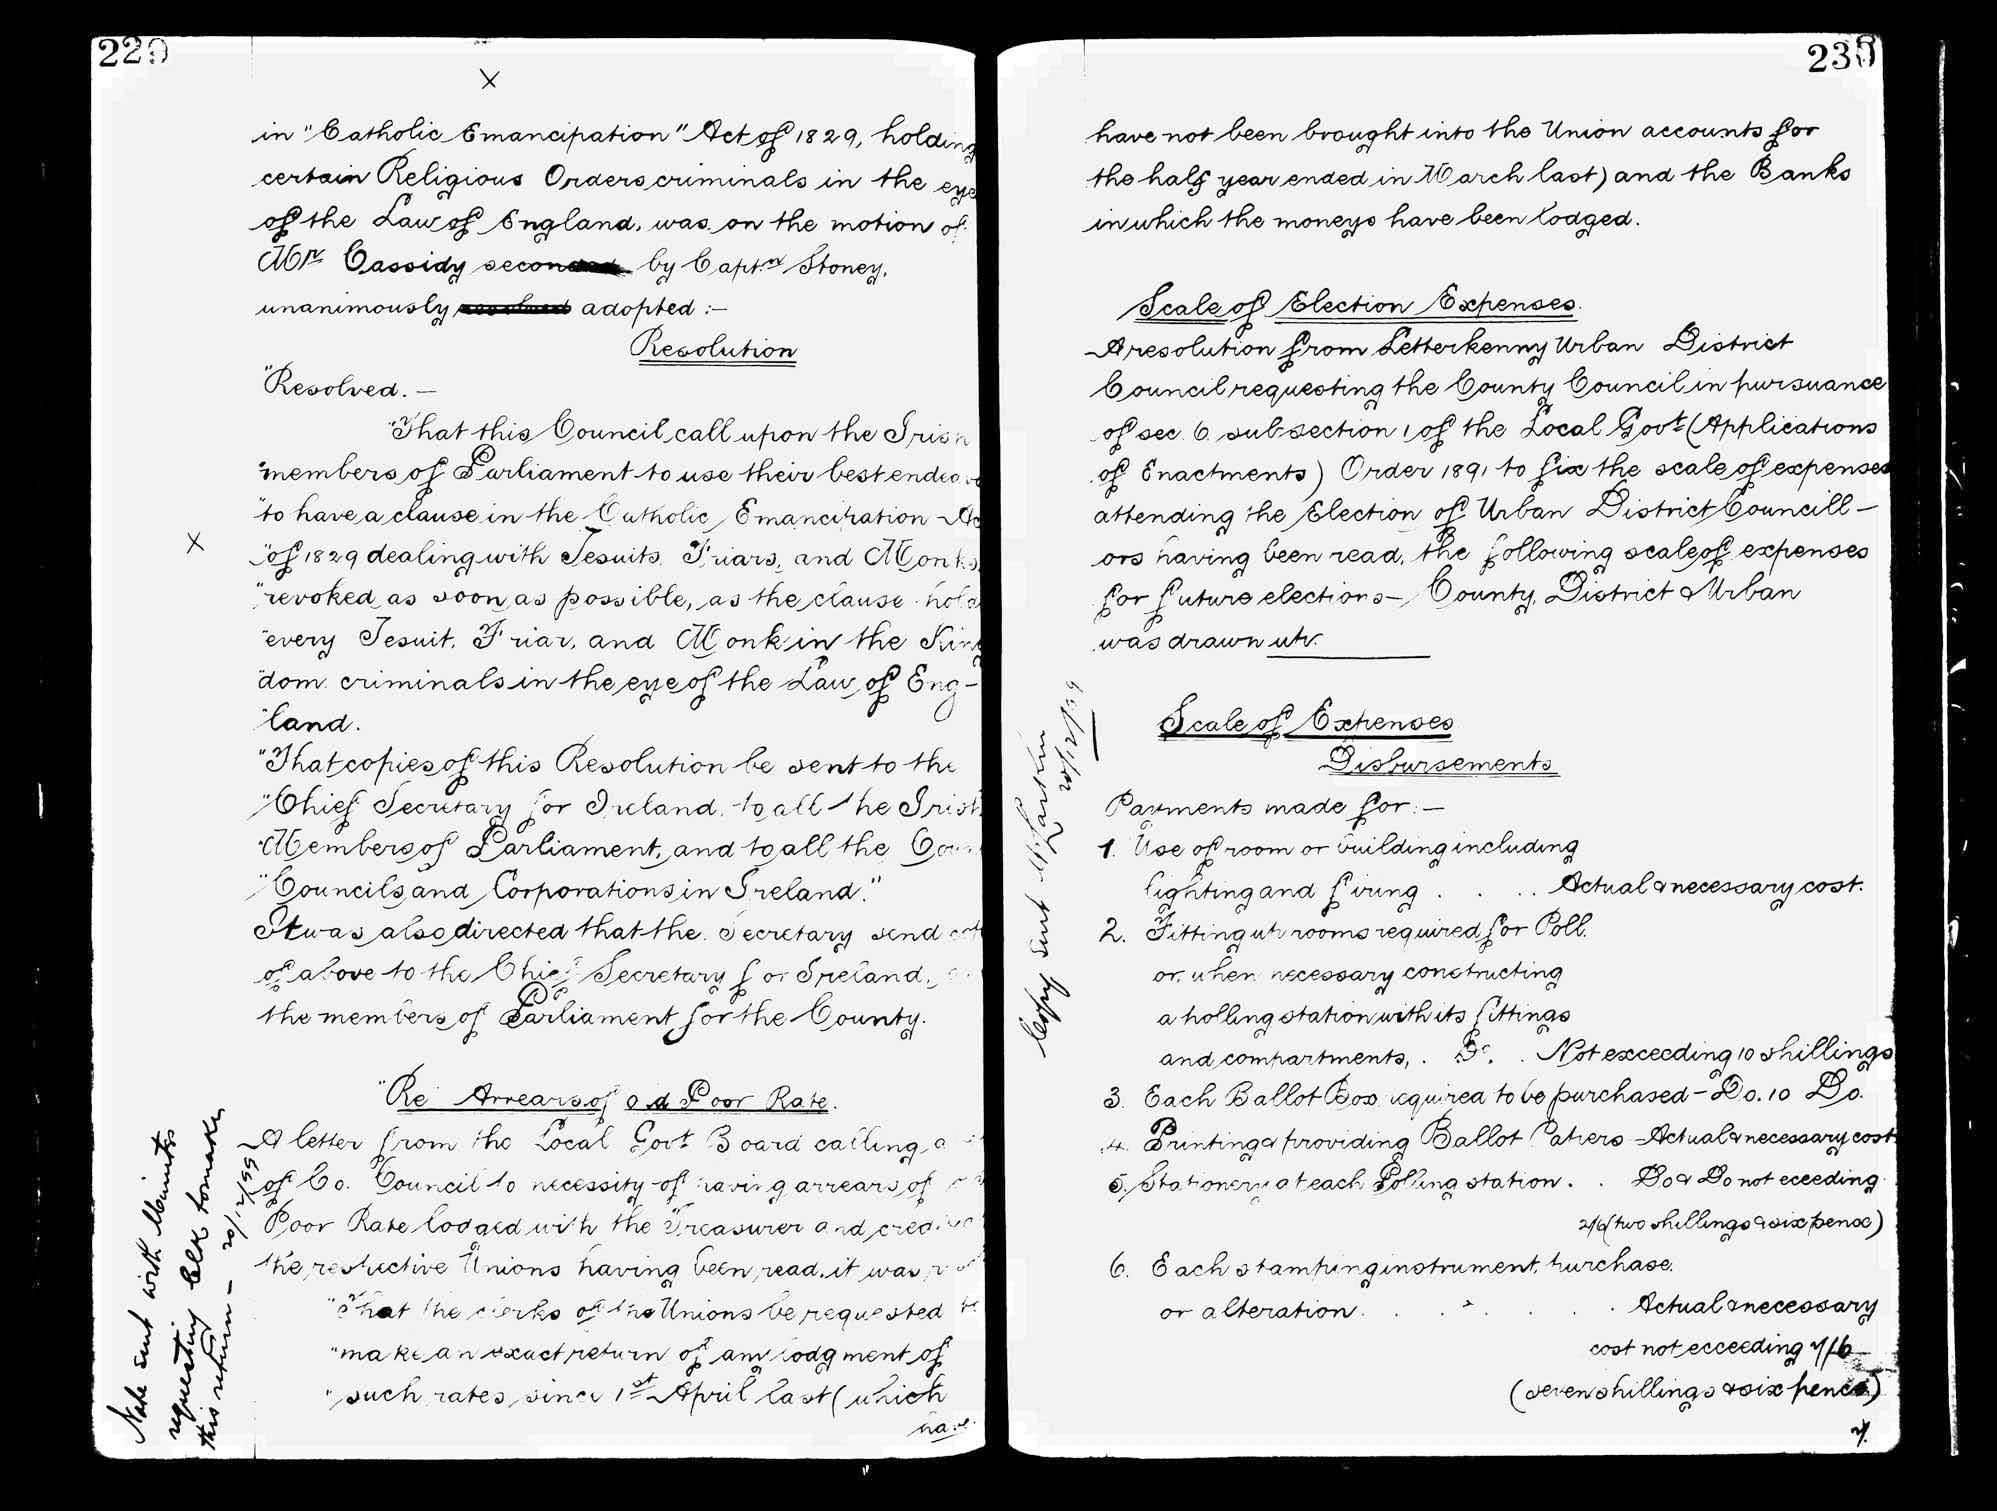 229
in "Catholic Emancipation" Act of 1829, holding
certain Religious Orders criminals in the eye
of the Law of England, was on the motion of
Mr Cassidy seconded by Captn Stoney,
unanimously resolved adopted :—
Resolution
"Resolved. —
"That this Council call upon the Irish
"members of Parliament to use their best endeavo
"to have a clause in the Catholic Emancipation Ac
"of 1829 dealing with Jesuits, Friars, and Monks,
"revoked as soon as possible, as the clause hold
"every Jesuit, Friar, and Monk in the King
"dom criminals in the eye of the Law of Eng-
"land.
"That copies of this Resolution be sent to the
"Chief Secretary for Ireland, to all the Irish
"Members of Parliament, and to all the Coun
"Councils and Corporations in Ireland."
It was also directed that the Secretary send
of above to the Chief Secretary for Ireland,
the members of Parliament for the County.
"Re Arrears of old Poor Rate.
A letter from the Local Govt Board calling
of Co. Council to necessity of having arrears of
Poor Rate lodged with the Treasurer and credi
the respective Unions having been read, it was
"That the clerks of the Unions be requested to
"make an exact return of any lodgment of
"such rates since 1st April last (which
have
Note sent with Minutes
requesting Clk to make
this return – 20/12/99
230
have not been brought into the Union accounts for
the half year ended in March last) and the Banks
in which the moneys have been lodged.
Scale of Election Expenses.
A resolution from Letterkenny Urban District
Council requesting the County Council in pursuance
of sec. 6 subsection 1 of the Local Govt (Applications
of Enactments) Order 1891 to fix the scale of expenses
attending the Election of Urban District Councill-
ors having been read, the following scale of expenses
for future elections – County, District & Urban
was drawn up.
Copy sent Mr Larkin
20/12/99
Scale of Expenses
Disbursements
Payments made for :—
1. Use of room or building including
lighting and firing . . . . Actual & necessary cost.
2. Fitting up rooms required for Poll.
or, when necessary constructing
a polling station with its fittings
and compartments, . Do. . Not exceeding 10 shillings
3. Each Ballot Box required to be purchased – Do. 10 Do.
4. Printing & providing Ballot Papers – Actual & necessary cost
5. Stationery at each Polling station . . Do & Do not eceeding
2/6 (two shillings & six pence)
6. Each stamping instrument, purchase.
or alteration . . . . . . Actual & necessary
cost not ecceeding 7/6
(seven shillings & six pence)
7.